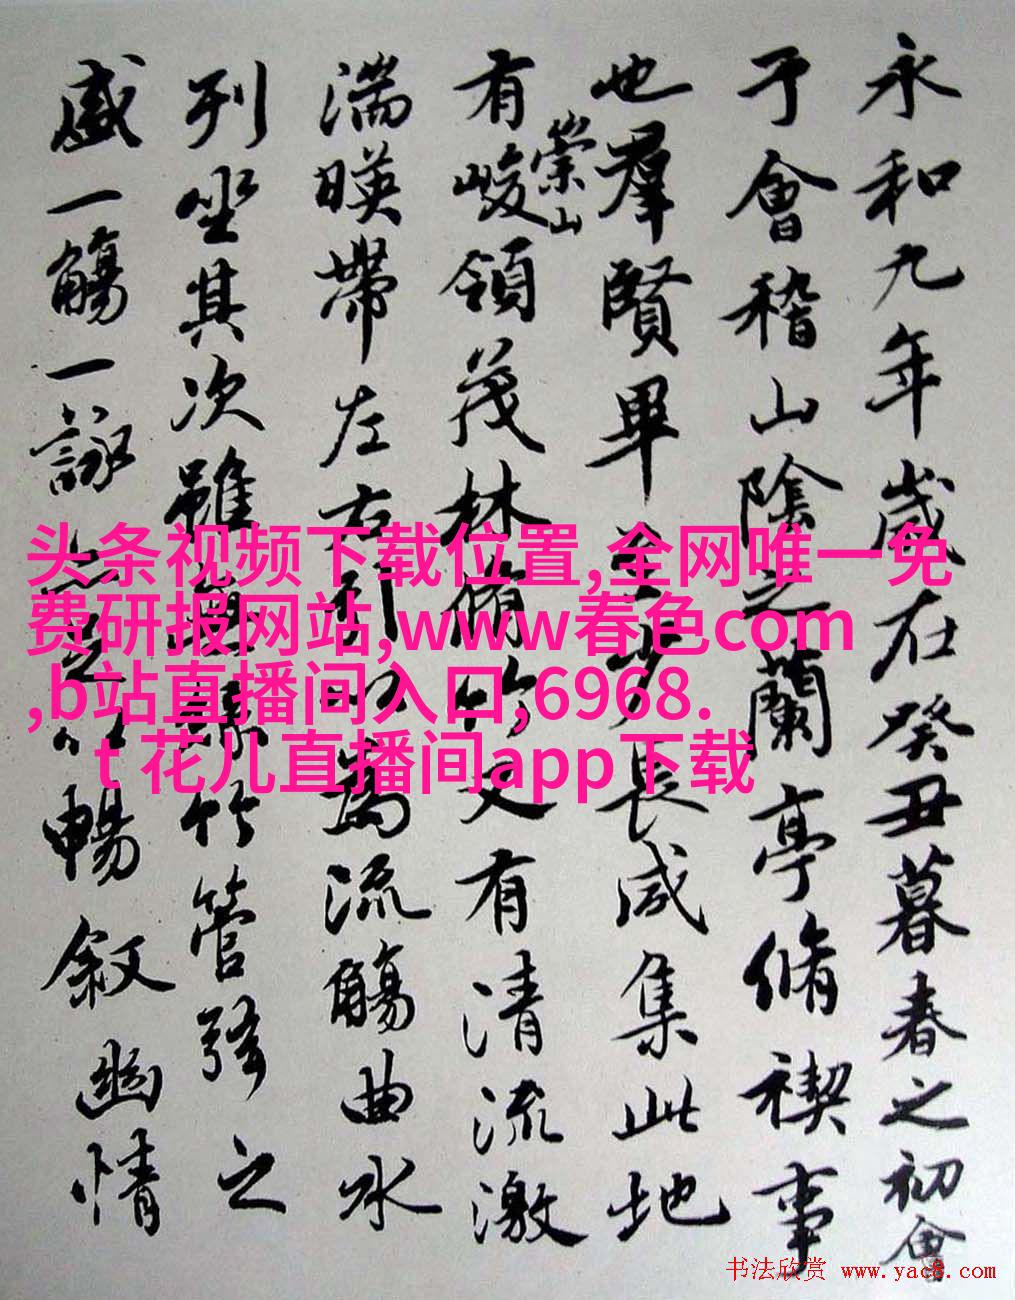 永和九年歲在癸丑暮春之初會
于會稽山陰之蘭亭脩禊事
也羣賢畢至少長咸集此地
有崇山峻領茂林脩竹又有清流激
湍暎帶左右引以為流觴曲水
列坐其次雖無絲竹管弦之
盛一觴一詠亦足以暢敘幽情
头条视频下载位置,全网唯一免
费研报网站,www春色com
,b站直播间入口,6968.
t 花儿直播间app下载
书法欣赏 www.yac8.com